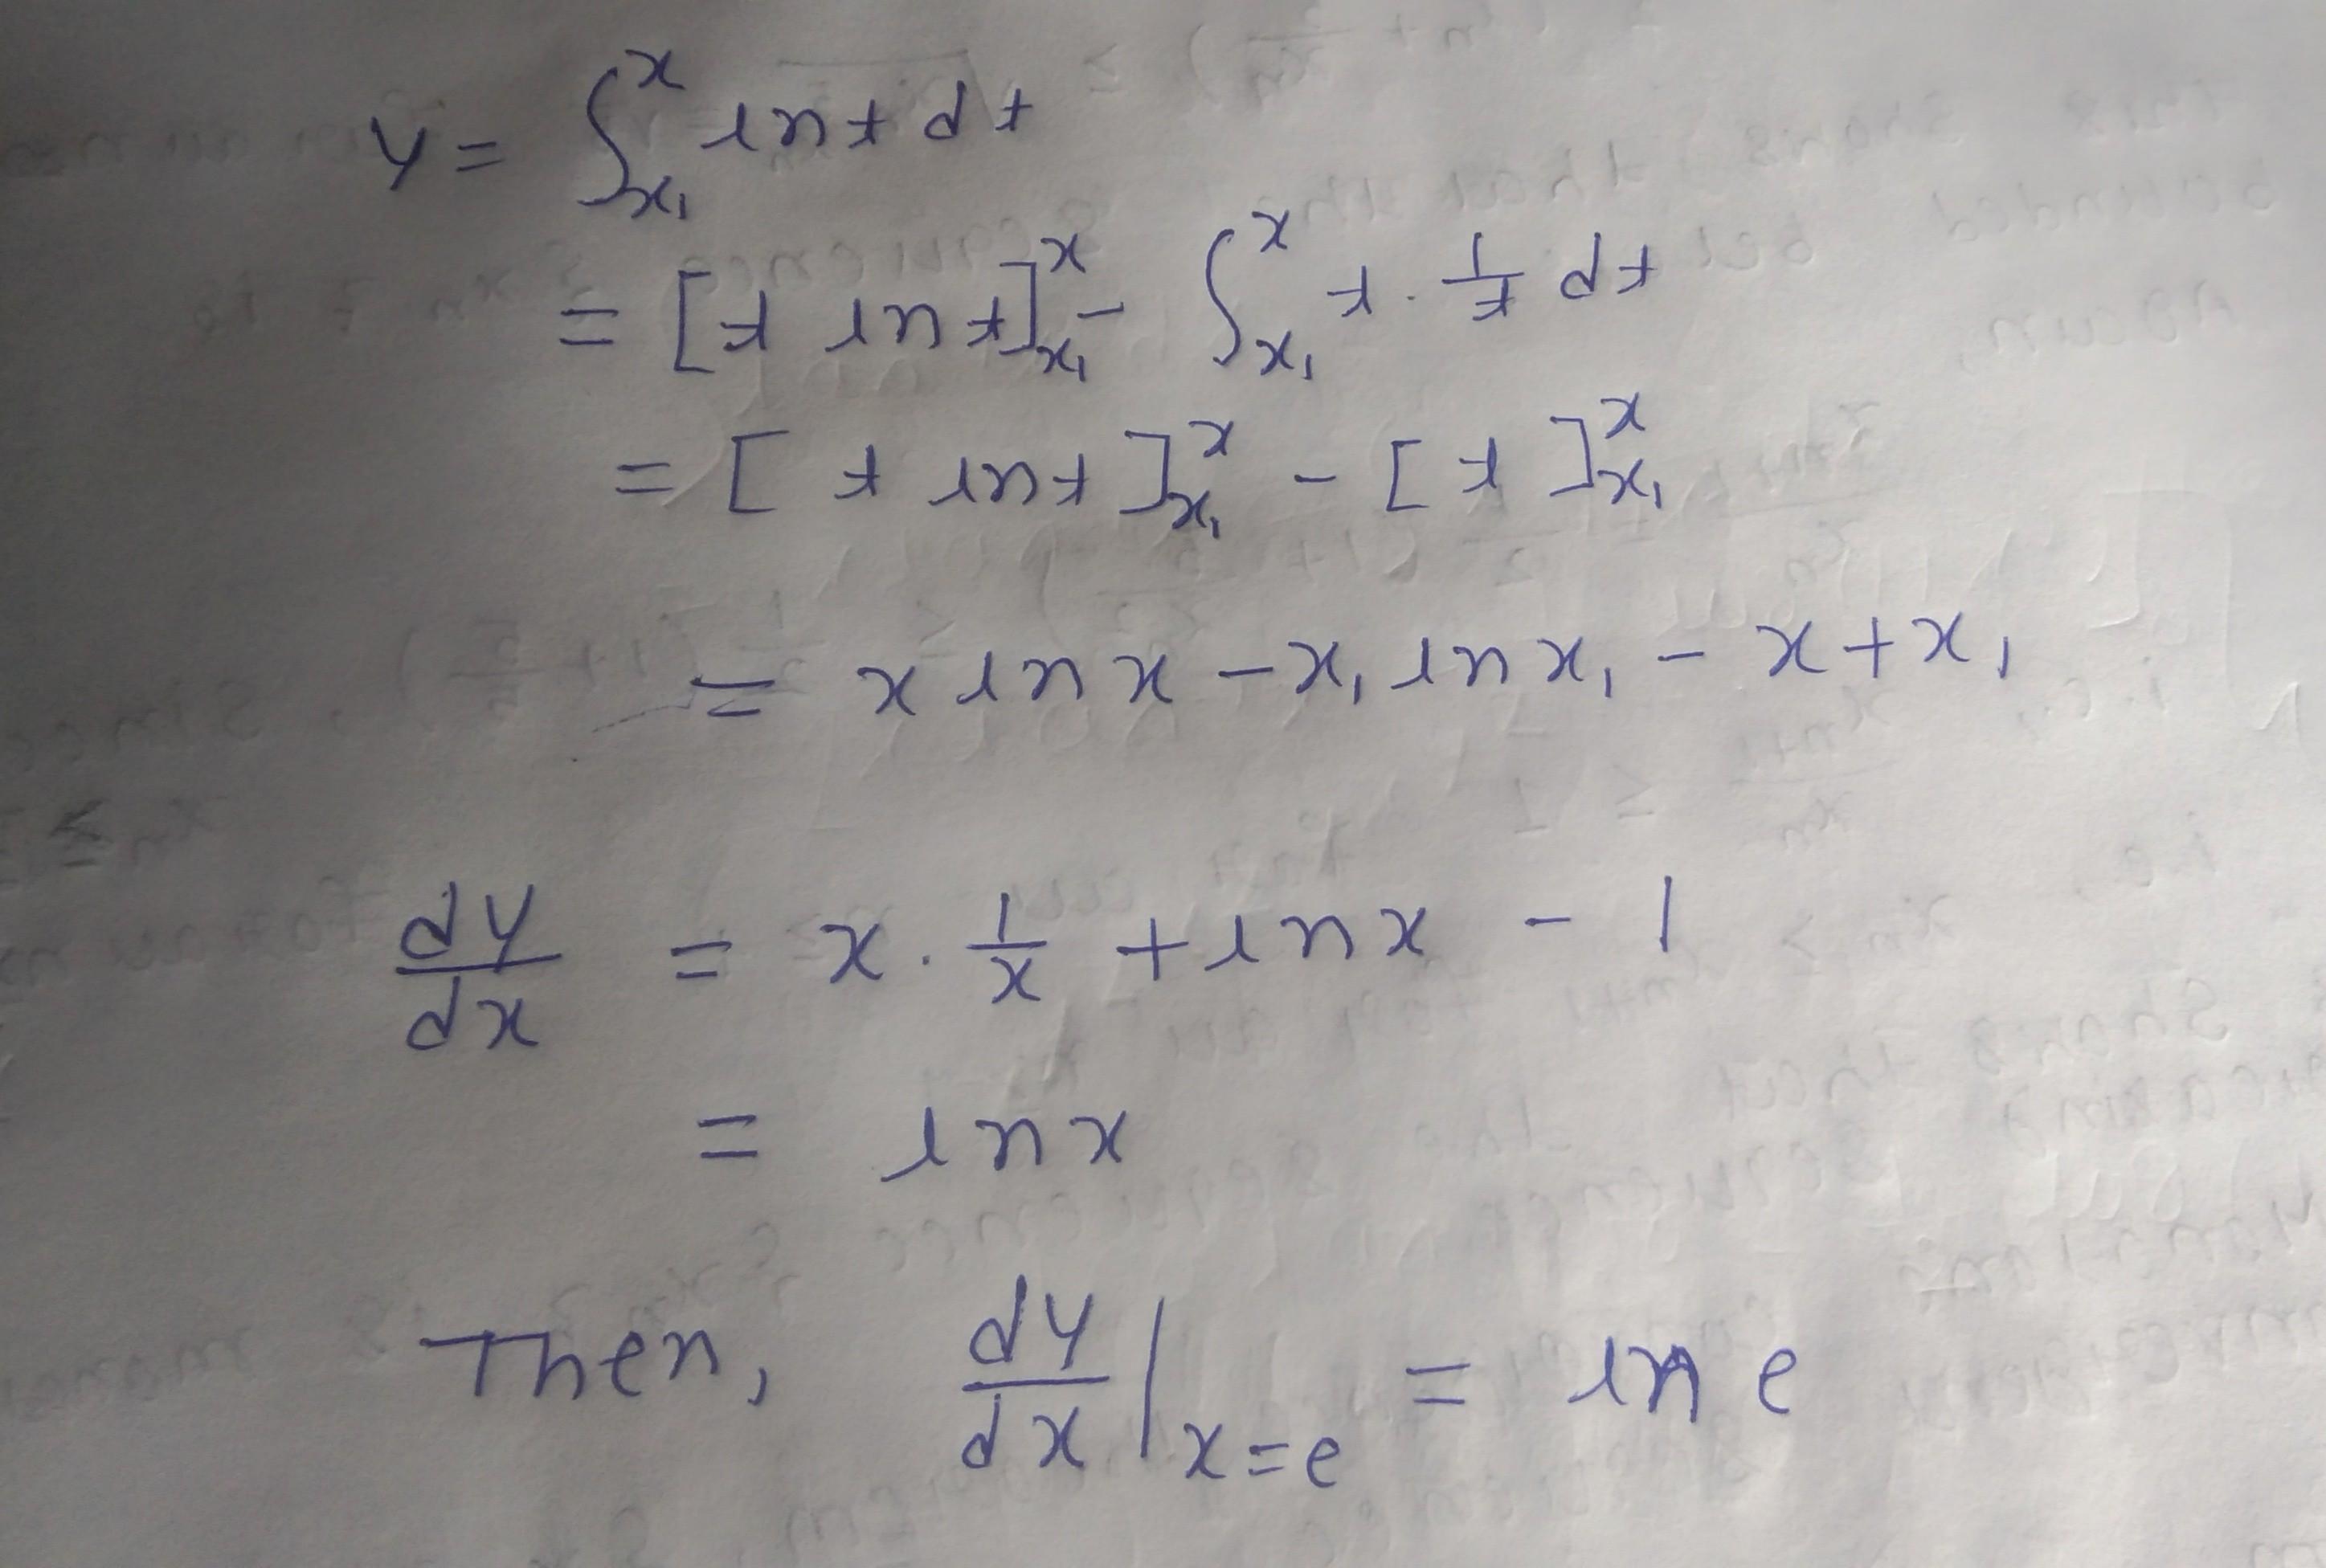 y = ∫_{x₁}^{x} ln t dt
= [t ln t]_{x₁}^{x} - ∫_{x₁}^{x} t · 1/t dt
= [t ln t]_{x₁}^{x} - [t]_{x₁}^{x}
= x ln x - x₁ ln x₁ - x + x₁
dy/dx = x · 1/x + ln x - 1
= ln x
Then, dy/dx |_{x=e} = ln e